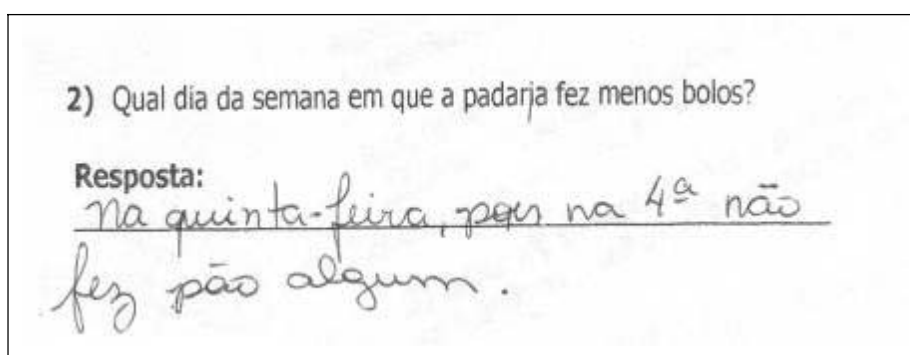 2) Qual dia da semana em que a padarja fez menos bolos?
Resposta:
Na quinta-feira, pois na 4ª não
fez pão algum.